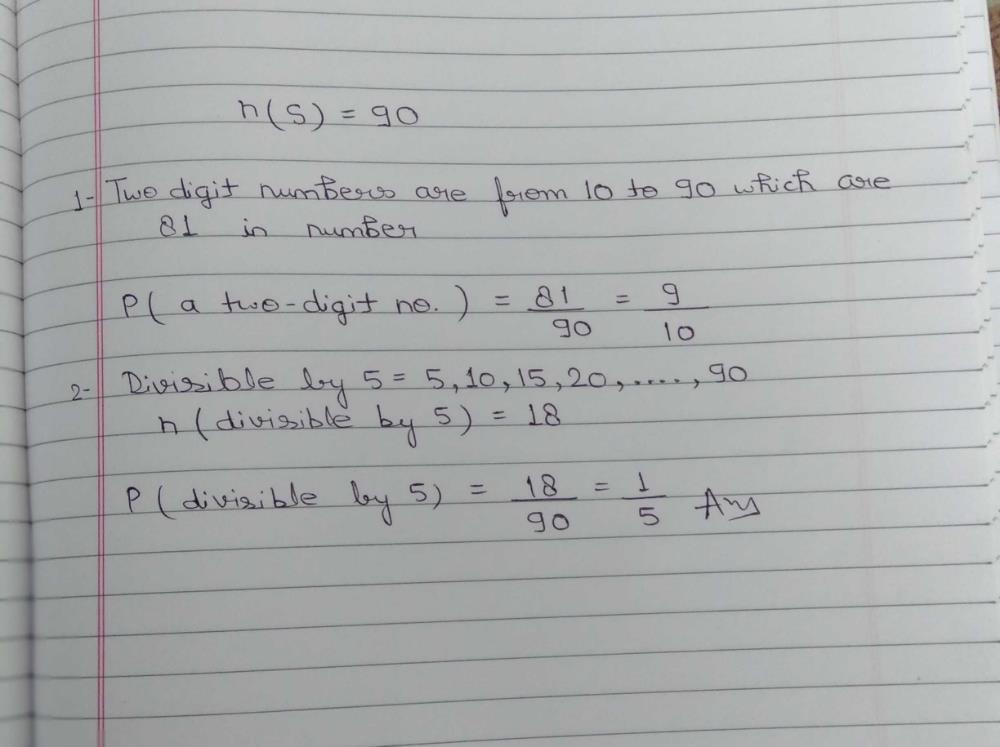 n(S) = 90
1- Two digit numbers are from 10 to 90 which are
81 in number
P( a two-digit no. ) = 81/90 = 9/10
2- Divisible by 5 = 5, 10, 15, 20, ....., 90
n (divisible by 5) = 18
P (divisible by 5) = 18/90 = 1/5 Ans